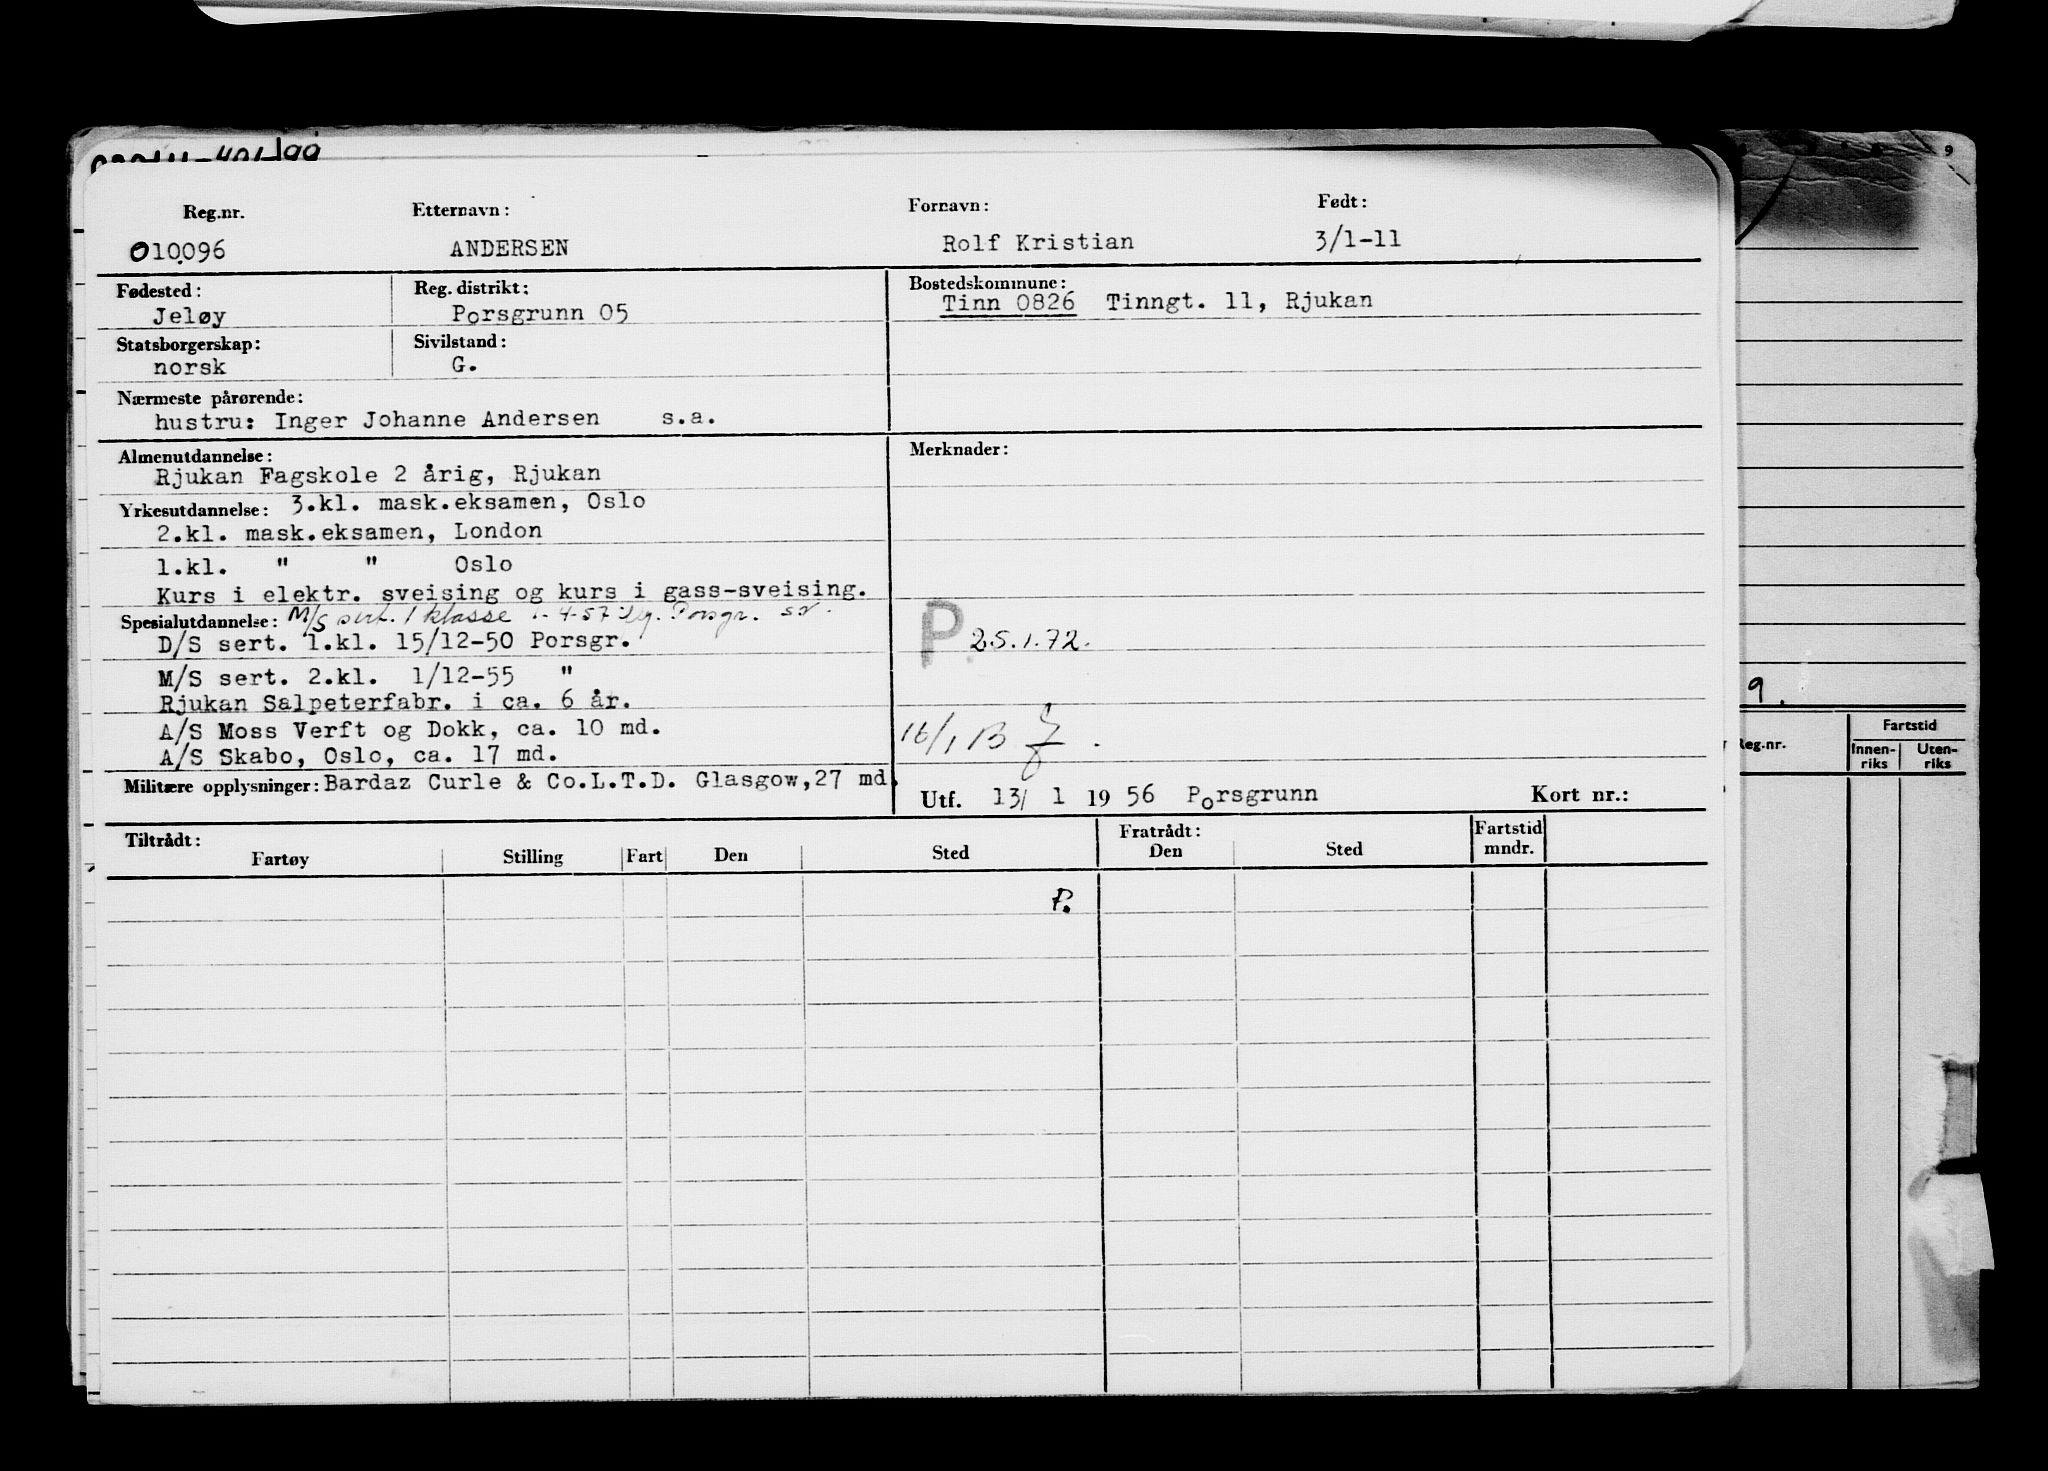 Reg.nr. Etternavn: Fornavn: Født:
010096 ANDERSEN Rolf Kristian 3/1-11
Fødested: Reg. distrikt: Bostedskommune:
Jeløy Porsgrunn 05 Tinn 0826 Tinngt. 11, Rjukan
Statsborgerskap: Sivilstand:
norsk G.
Nærmeste pårørende:
hustru: Inger Johanne Andersen s.a.
Almenutdannelse: Merknader:
Rjukan Fagskole 2 årig, Rjukan
Yrkesutdannelse: 3.kl. mask.eksamen, Oslo
2.kl. mask.eksamen, London
1.kl. " " Oslo
Kurs i elektr. sveising og kurs i gass-sveising.
Spesialutdannelse: M/S sert. 1 klasse 4-57 Porsgr.
D/S sert. 1.kl. 15/12-50 Porsgr. P. 25.1.72.
M/S sert. 2.kl. 1/12-55 "
Rjukan Salpeterfabr. i ca. 6 år.
A/S Moss Verft og Dokk, ca. 10 md. 16/1 B
A/S Skabo, Oslo, ca. 17 md.
Militære opplysninger: Bardaz Curle & Co.L.T.D. Glasgow,27 md.
Utf. 13/ 1 19 56 Porsgrunn Kort nr.:
Tiltrådt: Fratrådt: Fartstid
Fartøy Stilling Fart Den Sted Den Sted mndr.
P.
9
9.
Reg.nr. Fartstid
Innen-riks Uten-riks